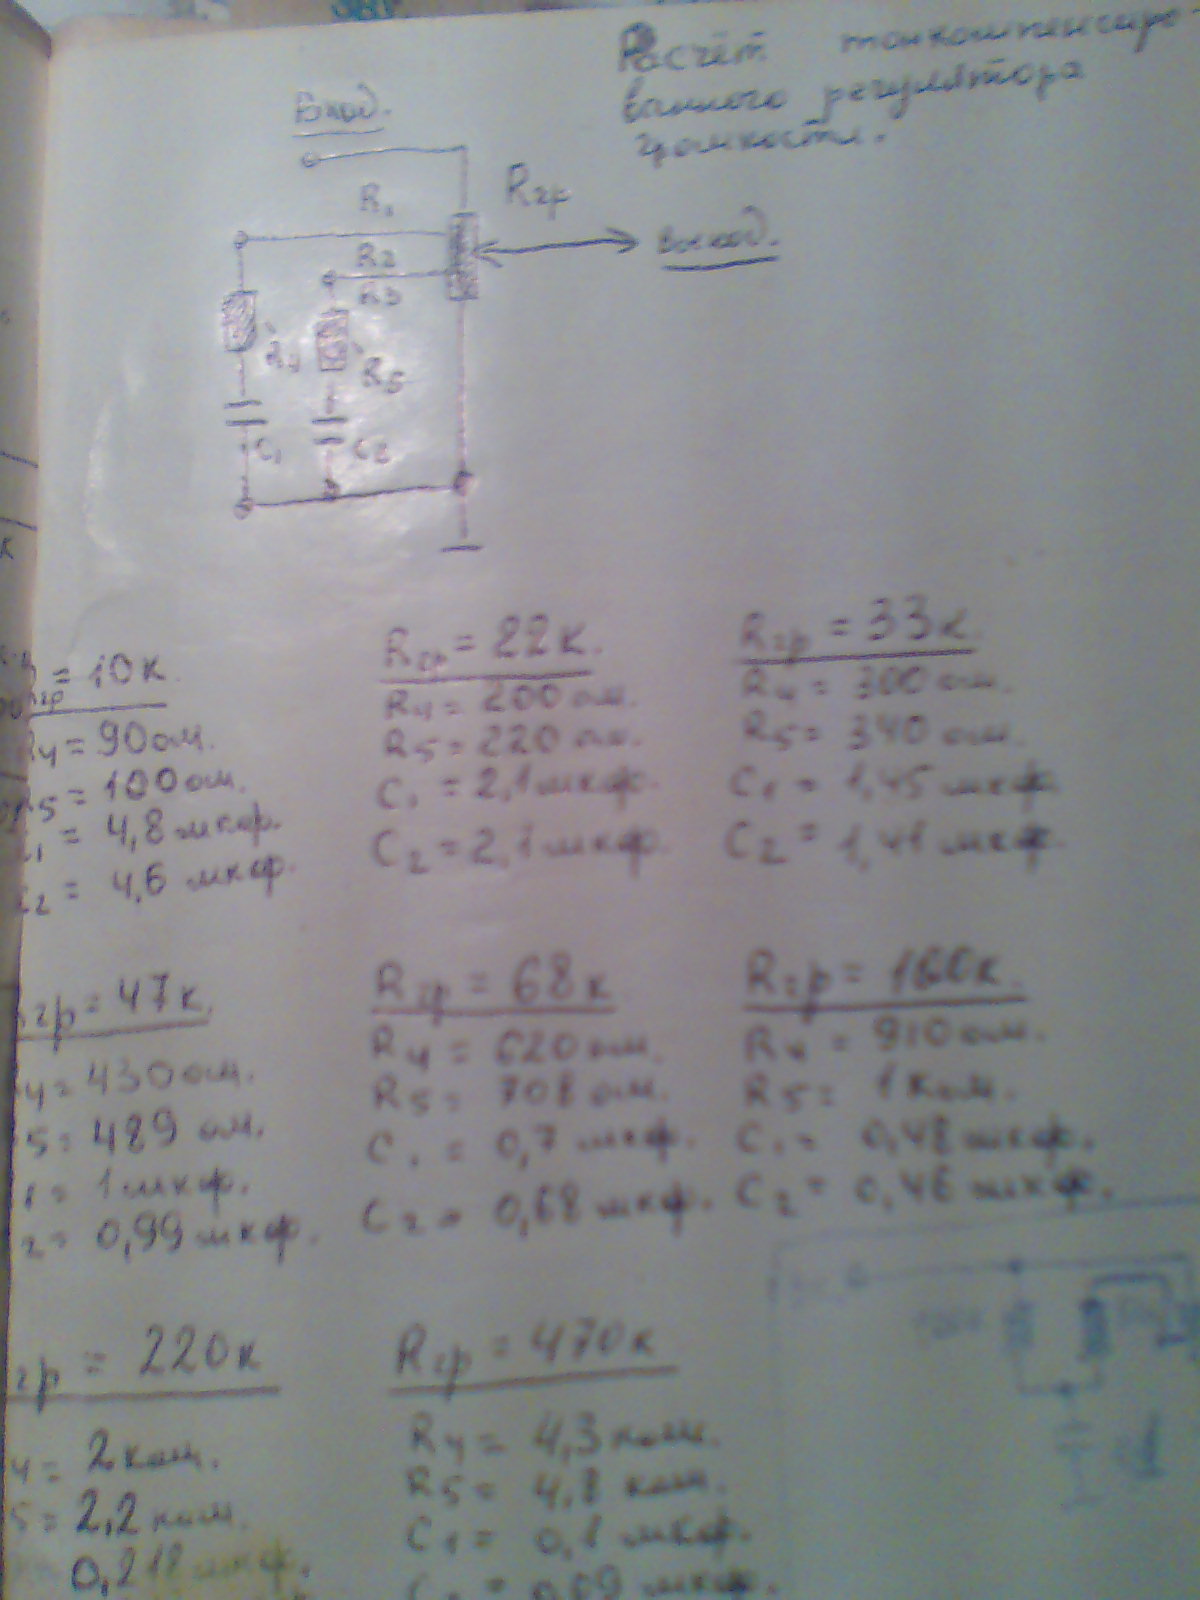 Расчёт тонкомпенсиро-
ванного регулятора
громкости.
Вход.
R1
Rгр
R2
Выход.
R3
R4
R5
C1
C2
Rгр = 10к.
R4 = 90 ом.
R5 = 100 ом.
C1 = 4,8 мкф.
C2 = 4,6 мкф.
Rгр = 22к.
R4 = 200 ом.
R5 = 220 ом.
C1 = 2,1 мкф.
C2 = 2,1 мкф.
Rгр = 33к.
R4 = 300 ом.
R5 = 340 ом.
C1 = 1,45 мкф.
C2 = 1,41 мкф.
гр = 47к.
4 = 430 ом.
5 = 489 ом.
1 = 1 мкф.
2 = 0,99 мкф.
Rгр = 68к
R4 = 620 ом.
R5 = 708 ом.
C1 = 0,7 мкф.
C2 = 0,68 мкф.
Rгр = 100к.
R4 = 910 ом.
R5 = 1 ком.
C1 = 0,48 мкф.
C2 = 0,46 мкф.
гр = 220к
4 = 2 ком.
5 = 2,2 ком.
0,218 мкф.
Rгр = 470к
R4 = 4,3 ком.
R5 = 4,8 ком.
C1 = 0,1 мкф.
C2 = 0,09 мкф.